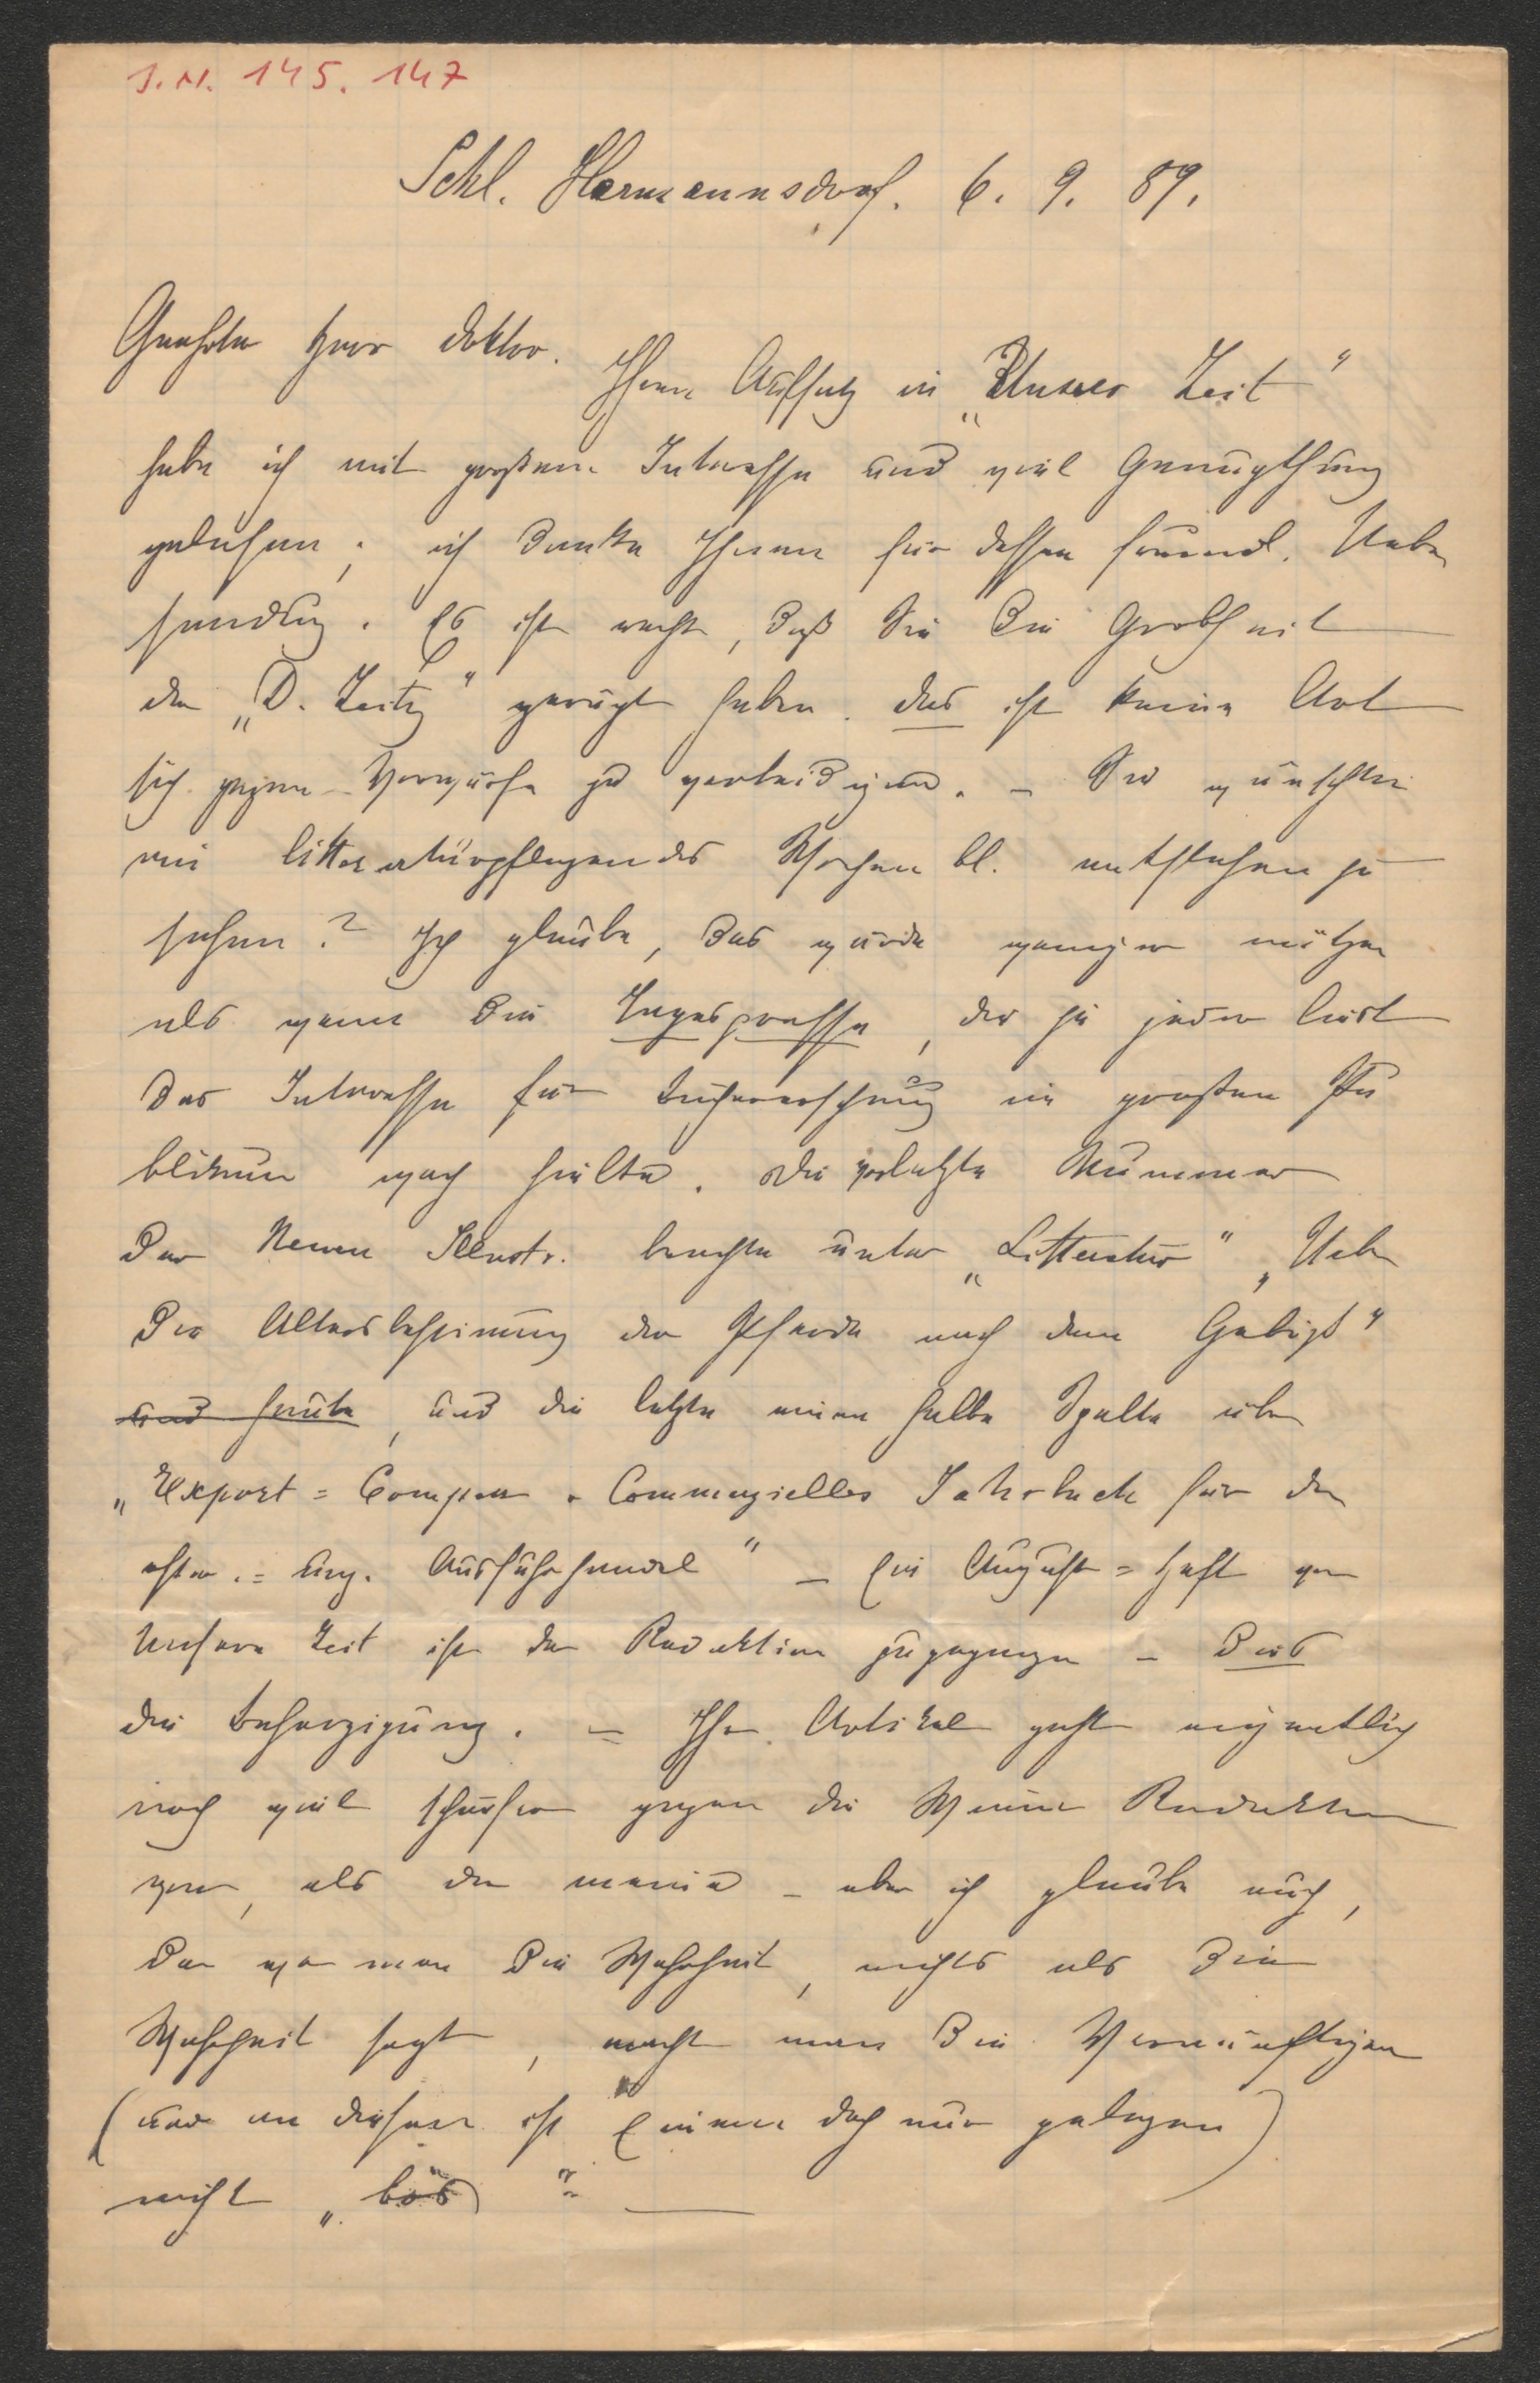 I.N. 145.147
Schl. Harmannsdorf. 6. 9. 89.
Geehrter Herr Doktor.
Ihren Aufsatz in „Unserer Zeit"
habe ich mit großem Interesse und viel Genugthuung
gelesen; ich danke Ihnen für dessen freundl. Ueber
sendung. Es ist recht, daß Sie die Grobheit
der „D. Zeitg" gerügt haben. Das ist keine Art
sich gegen Vorwürfe zu verteidigen. – Sie wünschten
ein litteraturpflegendes Wochenbl. entstehen zu
sehen? Ich glaube, das würde weniger nützen
als wenn die Tagespresse, die ja jeder liest
das Interesse für im großen Pu
blikum wach hielte. Die vorletzte Nummer
der Neuen Illustr. brachte unter „Litteratur" „Ueber
die Altersbestimmung der Pferde nach dem Gebiß"
und heute, und die letzte eine halbe Spalte über
„Export=Compass. Commerzielles Jahrbuch für den
österr.=ung. Ausfuhrhandel" – Ein August=Heft von
Unsere Zeit ist der Redaktion zugegangen – Dies
die Beherzigung. – Ihr Artikel geht eigentlich
noch viel schärfer gegen die Wiener Redaktio
nen, als der meine – aber ich glaube auch,
da wo man die Wahrheit, nichts als die
Wahrheit sagt, macht man die Vernünftigen
(und an diesen ist Einem doch nur gelegen)
nicht „bös"